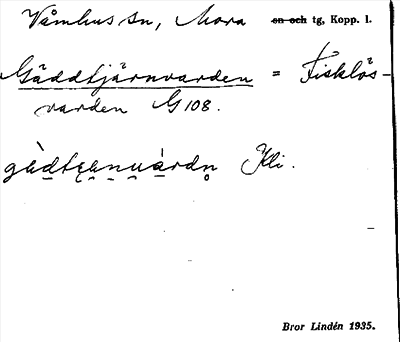 Våmhus sn, Mora on och tg, Kopp. l.
Gäddtjärnvarden = Fisklös-
varden G 108.
Kli.
Bror Lindén 1935.